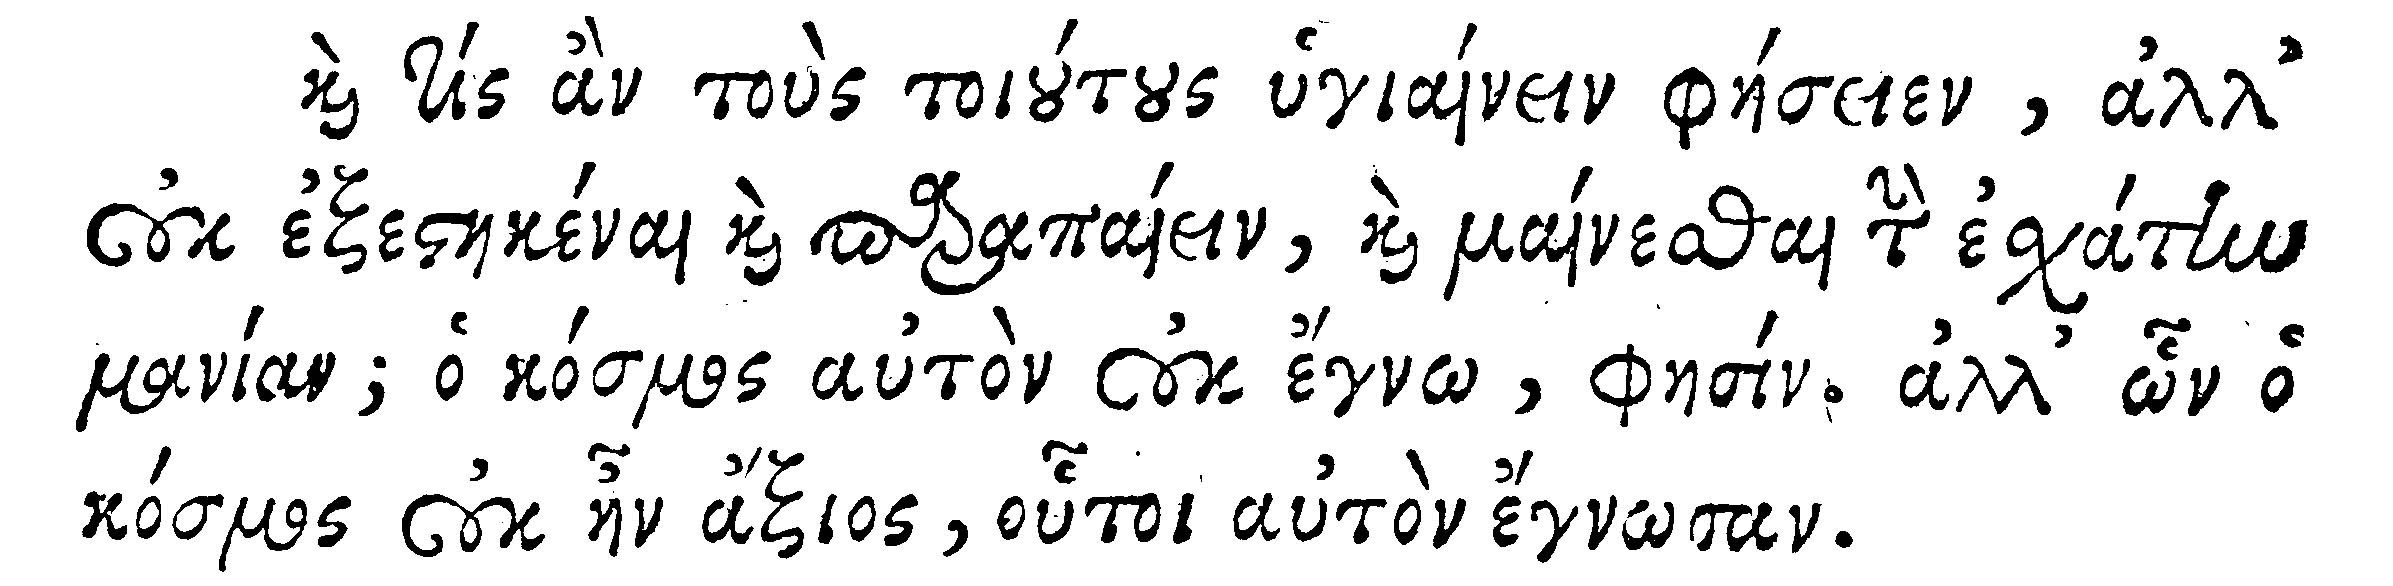 καὶ τίς ἂν τοὺς τοιούτους ὑγιαίνειν φήσειεν, ἀλλ'
οὐκ ἐξεστηκέναι καὶ παραπαίειν, καὶ μαίνεσθαι τὴν ἐσχάτην
μανίαν; ὁ κόσμος αὐτὸν οὐκ ἔγνω, φησίν. ἀλλ' ὧν ὁ
κόσμος οὐκ ἦν ἄξιος, οὗτοι αὐτὸν ἔγνωσαν.